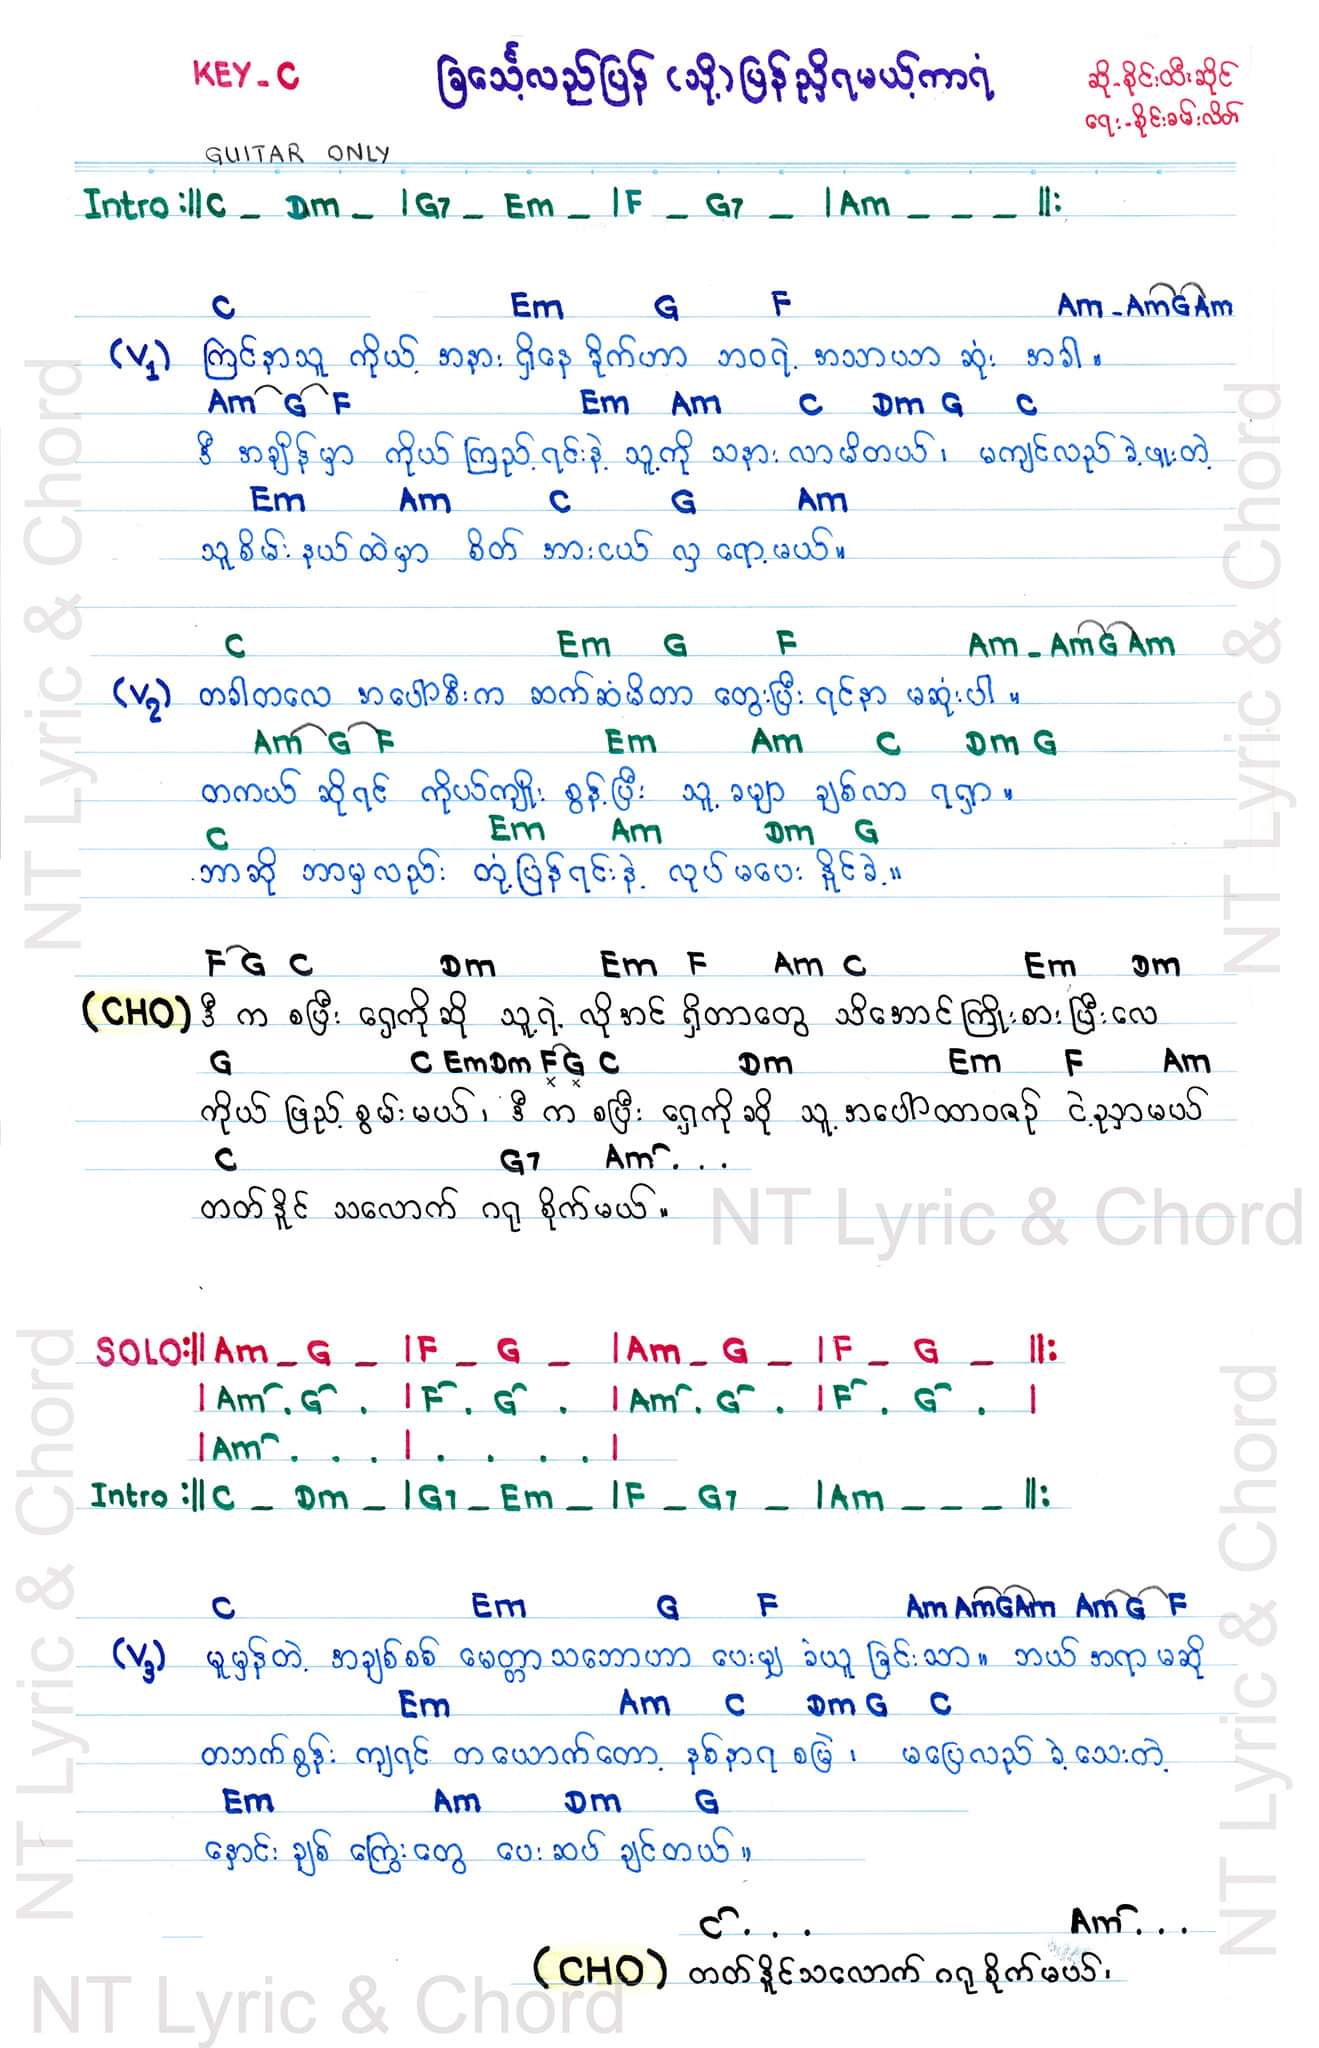 KEY - C
ခြင်္သေ့လည်ပြန် (သို့) ပြန်ညှိရမယ့်ကာရံ
ဆို - စိုင်းထီးဆိုင်
ရေး - စိုင်းခမ်းလိတ်
GUITAR ONLY
Intro :||C _ Dm _ |G7 _ Em _ |F _ G7 _ |Am _ _ _ ||:
C Em G F Am - Am G Am
(V1) ကြင်နာသူ ကိုယ့် အနား ရှိနေ ခိုက်ဟာ ဘဝရဲ့ အသာယာ ဆုံး အခါ။
Am G F Em Am C Dm G C
ဒီ အချိန်မှာ ကိုယ် ကြည့်ရင်းနဲ့ သူ့ကို သနား လာမိတယ်၊ မကျင်လည် ခဲ့ဖူးတဲ့
Em Am C G Am
သူစိမ်း နယ်ထဲမှာ စိတ် အားငယ် လှ ရော့မယ်။
C Em G F Am - Am G Am
(V2) တခါတလေ အပေါ်စီးက ဆက်ဆံမိတာ တွေးပြီး ရင်နာ မဆုံးပါ။
Am G F Em Am C Dm G
တကယ် ဆိုရင် ကိုယ်ကျိုး စွန့်ပြီး သူ့ ခမျာ ချစ်လာ ရရှာ။
C Em Am Dm G
ဘာဆို ဘာမှလည်း တုံ့ပြန်ရင်းနဲ့ လုပ်မပေး နိုင်ခဲ့။
F G C Dm Em F Am C Em Dm
(CHO) ဒီ က စပြီး ရှေ့ကိုဆို သူ့ရဲ့ လိုအင် ရှိတာတွေ သိအောင်ကြိုးစားပြီးလေ
G C Em Dm F G C Dm Em F Am
x x
ကိုယ် ဖြည့်စွမ်းမယ်၊ ဒီ က စပြီး ရှေ့ကိုဆို သူ့ အပေါ်ထာဝစဉ် ငဲ့ညှာမယ်
C G7 Am . . .
တတ်နိုင် သလောက် ဂရု စိုက်မယ်။
SOLO :||Am _ G _ |F _ G _ |Am _ G _ |F _ G _ ||:
|Am . G . |F . G . |Am . G . |F . G . |
|Am . . . | . . . . |
Intro :||C _ Dm _ |G7 _ Em _ |F _ G7 _ |Am _ _ _ ||:
C Em G F Am Am G Am Am G F
(V3) မူမှန်တဲ့ အချစ်စစ် မေတ္တာသဘောဟာ ပေးမျှ ခံယူ ခြင်းသာ။ ဘယ် အရာ မဆို
Em Am C Dm G C
တဘက်စွန်း ကျရင် တယောက်တော့ နစ်နာရ စမြဲ၊ မပြေလည် ခဲ့သေးတဲ့
Em Am Dm G
နှောင်း ချစ် ကြွေးတွေ ပေးဆပ် ချင်တယ်။
C . . . Am . . .
(CHO) တတ်နိုင်သလောက် ဂရုစိုက်မယ်၊
NT Lyric & Chord
NT Lyric & Chord
NT Lyric & Chord
NT Lyric & Chord
NT Lyric & Chord
NT Lyric & Chord